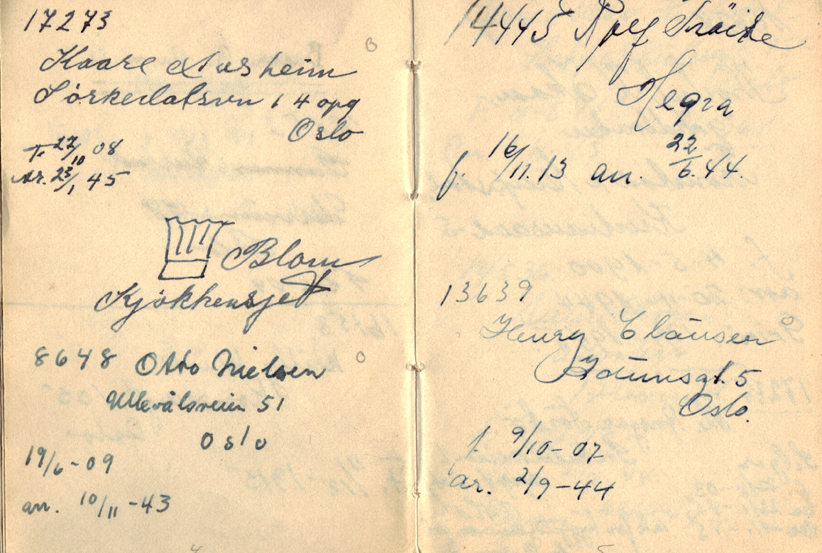 17273
Kaare Aarsheim
Sørkedalsvn 14 opg
Oslo
F. 27/10 08
Ar. 23/1 45
Blom
Kjøkkensjef
8648 Otto Nielsen
Ullevålsveien 51
Oslo
19/6-09
arr. 10/11-43
14445
Hegra
f. 16/11.13 arr. 22/6.44
13639
Henry Clausen
5
Oslo.
f. 9/10-07
ar. 2/9-44